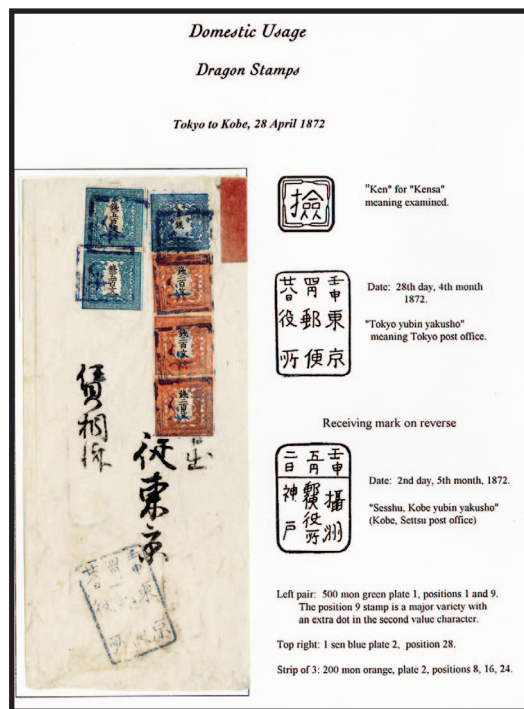 Domestic Usage
Dragon Stamps
Tokyo to Kobe, 28 April 1872
錢五百文
錢五百文
錢二百文
錢二百文
錢二百文
賃相済
従東京
撿
"Ken" for "Kensa"
meaning examined.
壬申東京
四月郵便
廿八日役所
Date: 28th day, 4th month
1872.
"Tokyo yubin yakusho"
meaning Tokyo post office.
Receiving mark on reverse
壬申攝州
五月郵便役所
二日神戸
Date: 2nd day, 5th month, 1872.
"Sesshu, Kobe yubin yakusho"
(Kobe, Settsu post office)
Left pair: 500 mon green plate 1, positions 1 and 9.
The position 9 stamp is a major variety with
an extra dot in the second value character.
Top right: 1 sen blue plate 2, position 28.
Strip of 3: 200 mon orange, plate 2, positions 8, 16, 24.